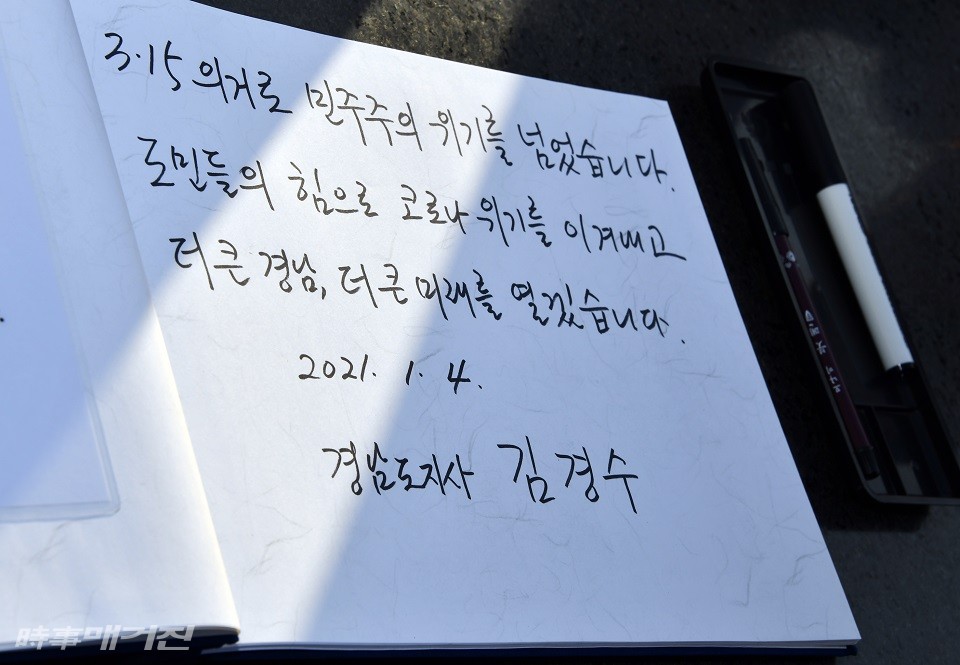 3·15 의거로 민주주의 위기를 넘었습니다.
도민들의 힘으로 코로나 위기를 이겨내고
더 큰 경남, 더 큰 미래를 열겠습니다.
2021. 1. 4.
경남도지사 김경수
時事매거진